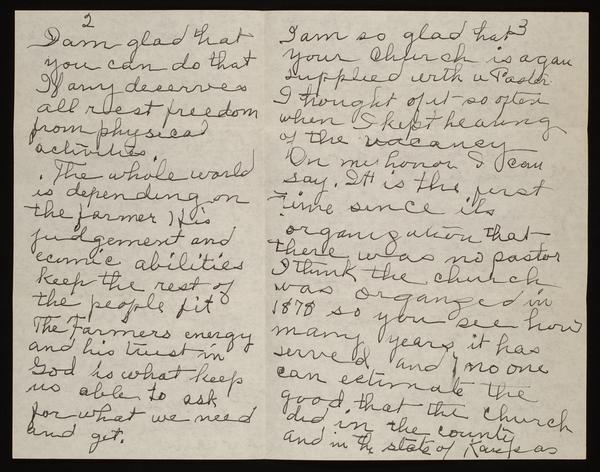 2
I am glad that
you can do that
If any deserves
all rest freedom
from physical
activities.
. The whole world
is depending on
the farmer, His
judgement and
ecomic abilities
keep the rest of
the people fit
The Farmers energy
and his trust in
God is what keep
us able to ask
for what we need
and get.
3
I am so glad that
your Church is again
supplied with a Pastor
I thought of it so often
when I kept hearing
of the vacancy
On my honor I can
say. It is the first
time since its
organization that
there was no pastor
I think the church
was organzed in
1878 so you see how
many years it has
served and no one
can estimate the
good that the church
did in the county
and in the state of Kansas